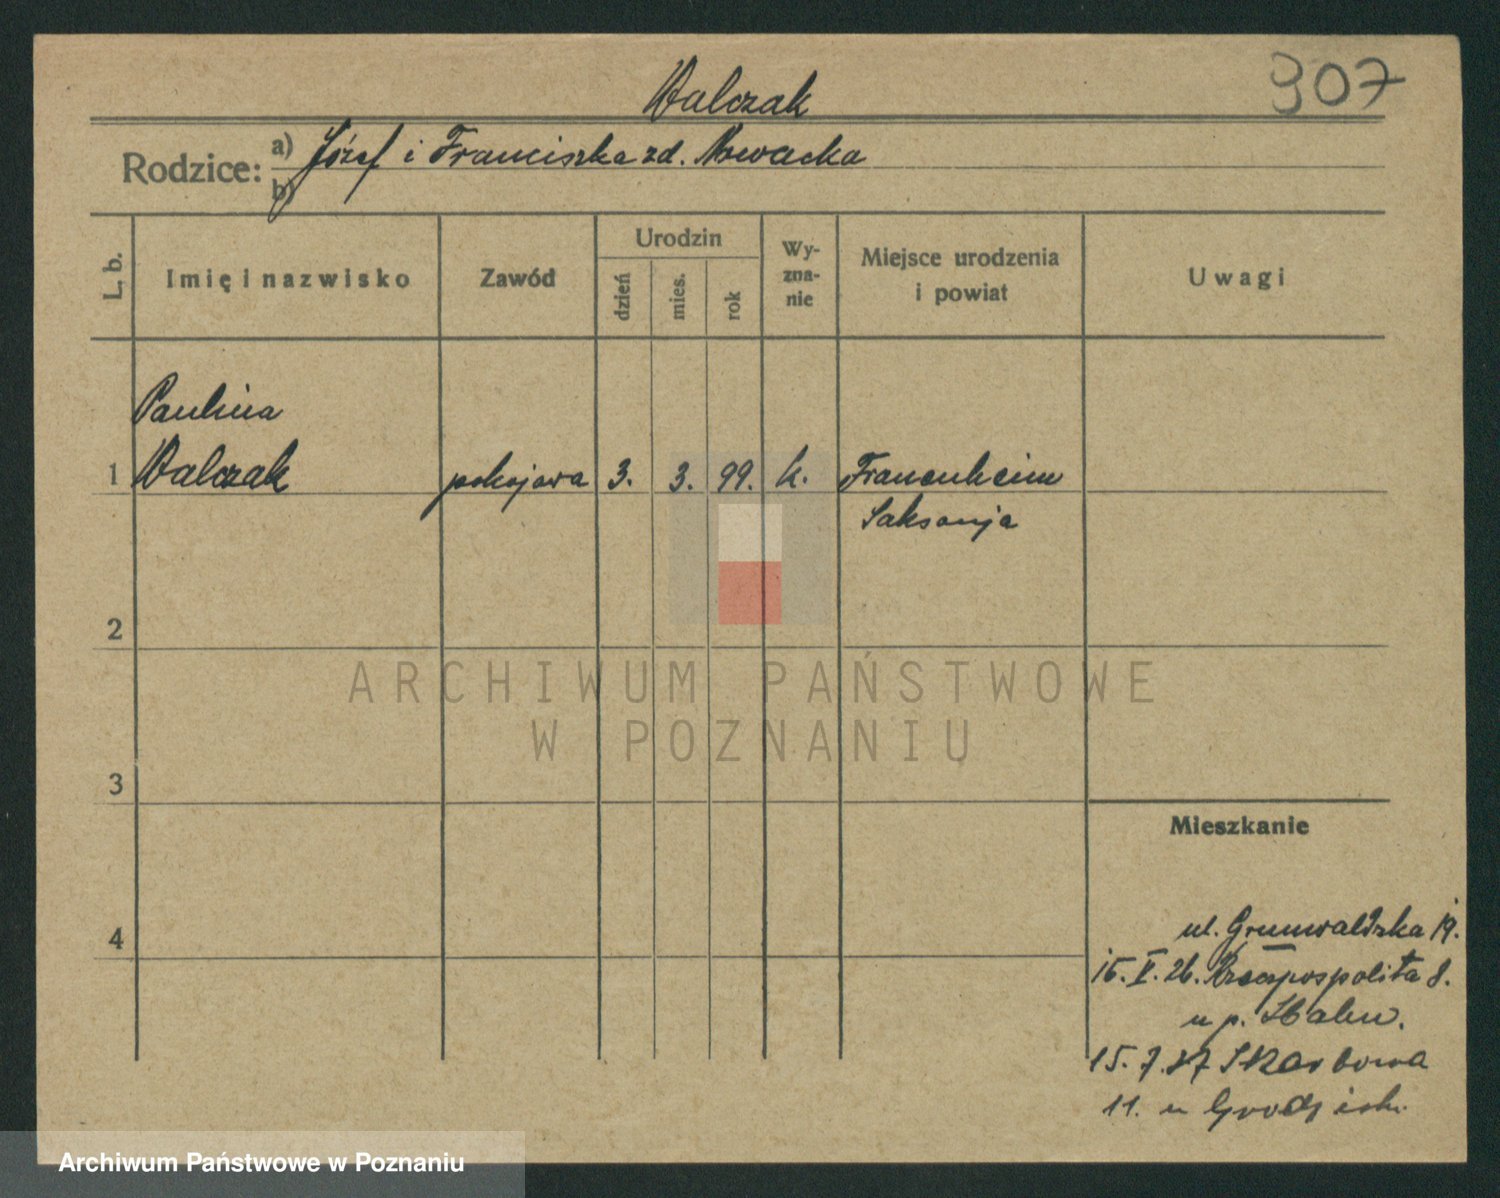 Walczak
907
Rodzice: a) Józef i Franciszka zd. Nowacka
b)
L. b.
Imię i nazwisko
Zawód
Urodzin
dzień
mies.
rok
Wy-
zna-
nie
Miejsce urodzenia
i powiat
Uwagi
Paulina
1 Walczak pokojowa 3. 3. 99. k. Frauenheim
Saksonja
2
ARCHIWUM PAŃSTWOWE
W POZNANIU
3
Mieszkanie
4
ul. Grunwaldzka 19.
15. V. 26. Rzeczpospolita 8.
u p.
15. 7. 27 Skarbowa
11. u
Archiwum Państwowe w Poznaniu